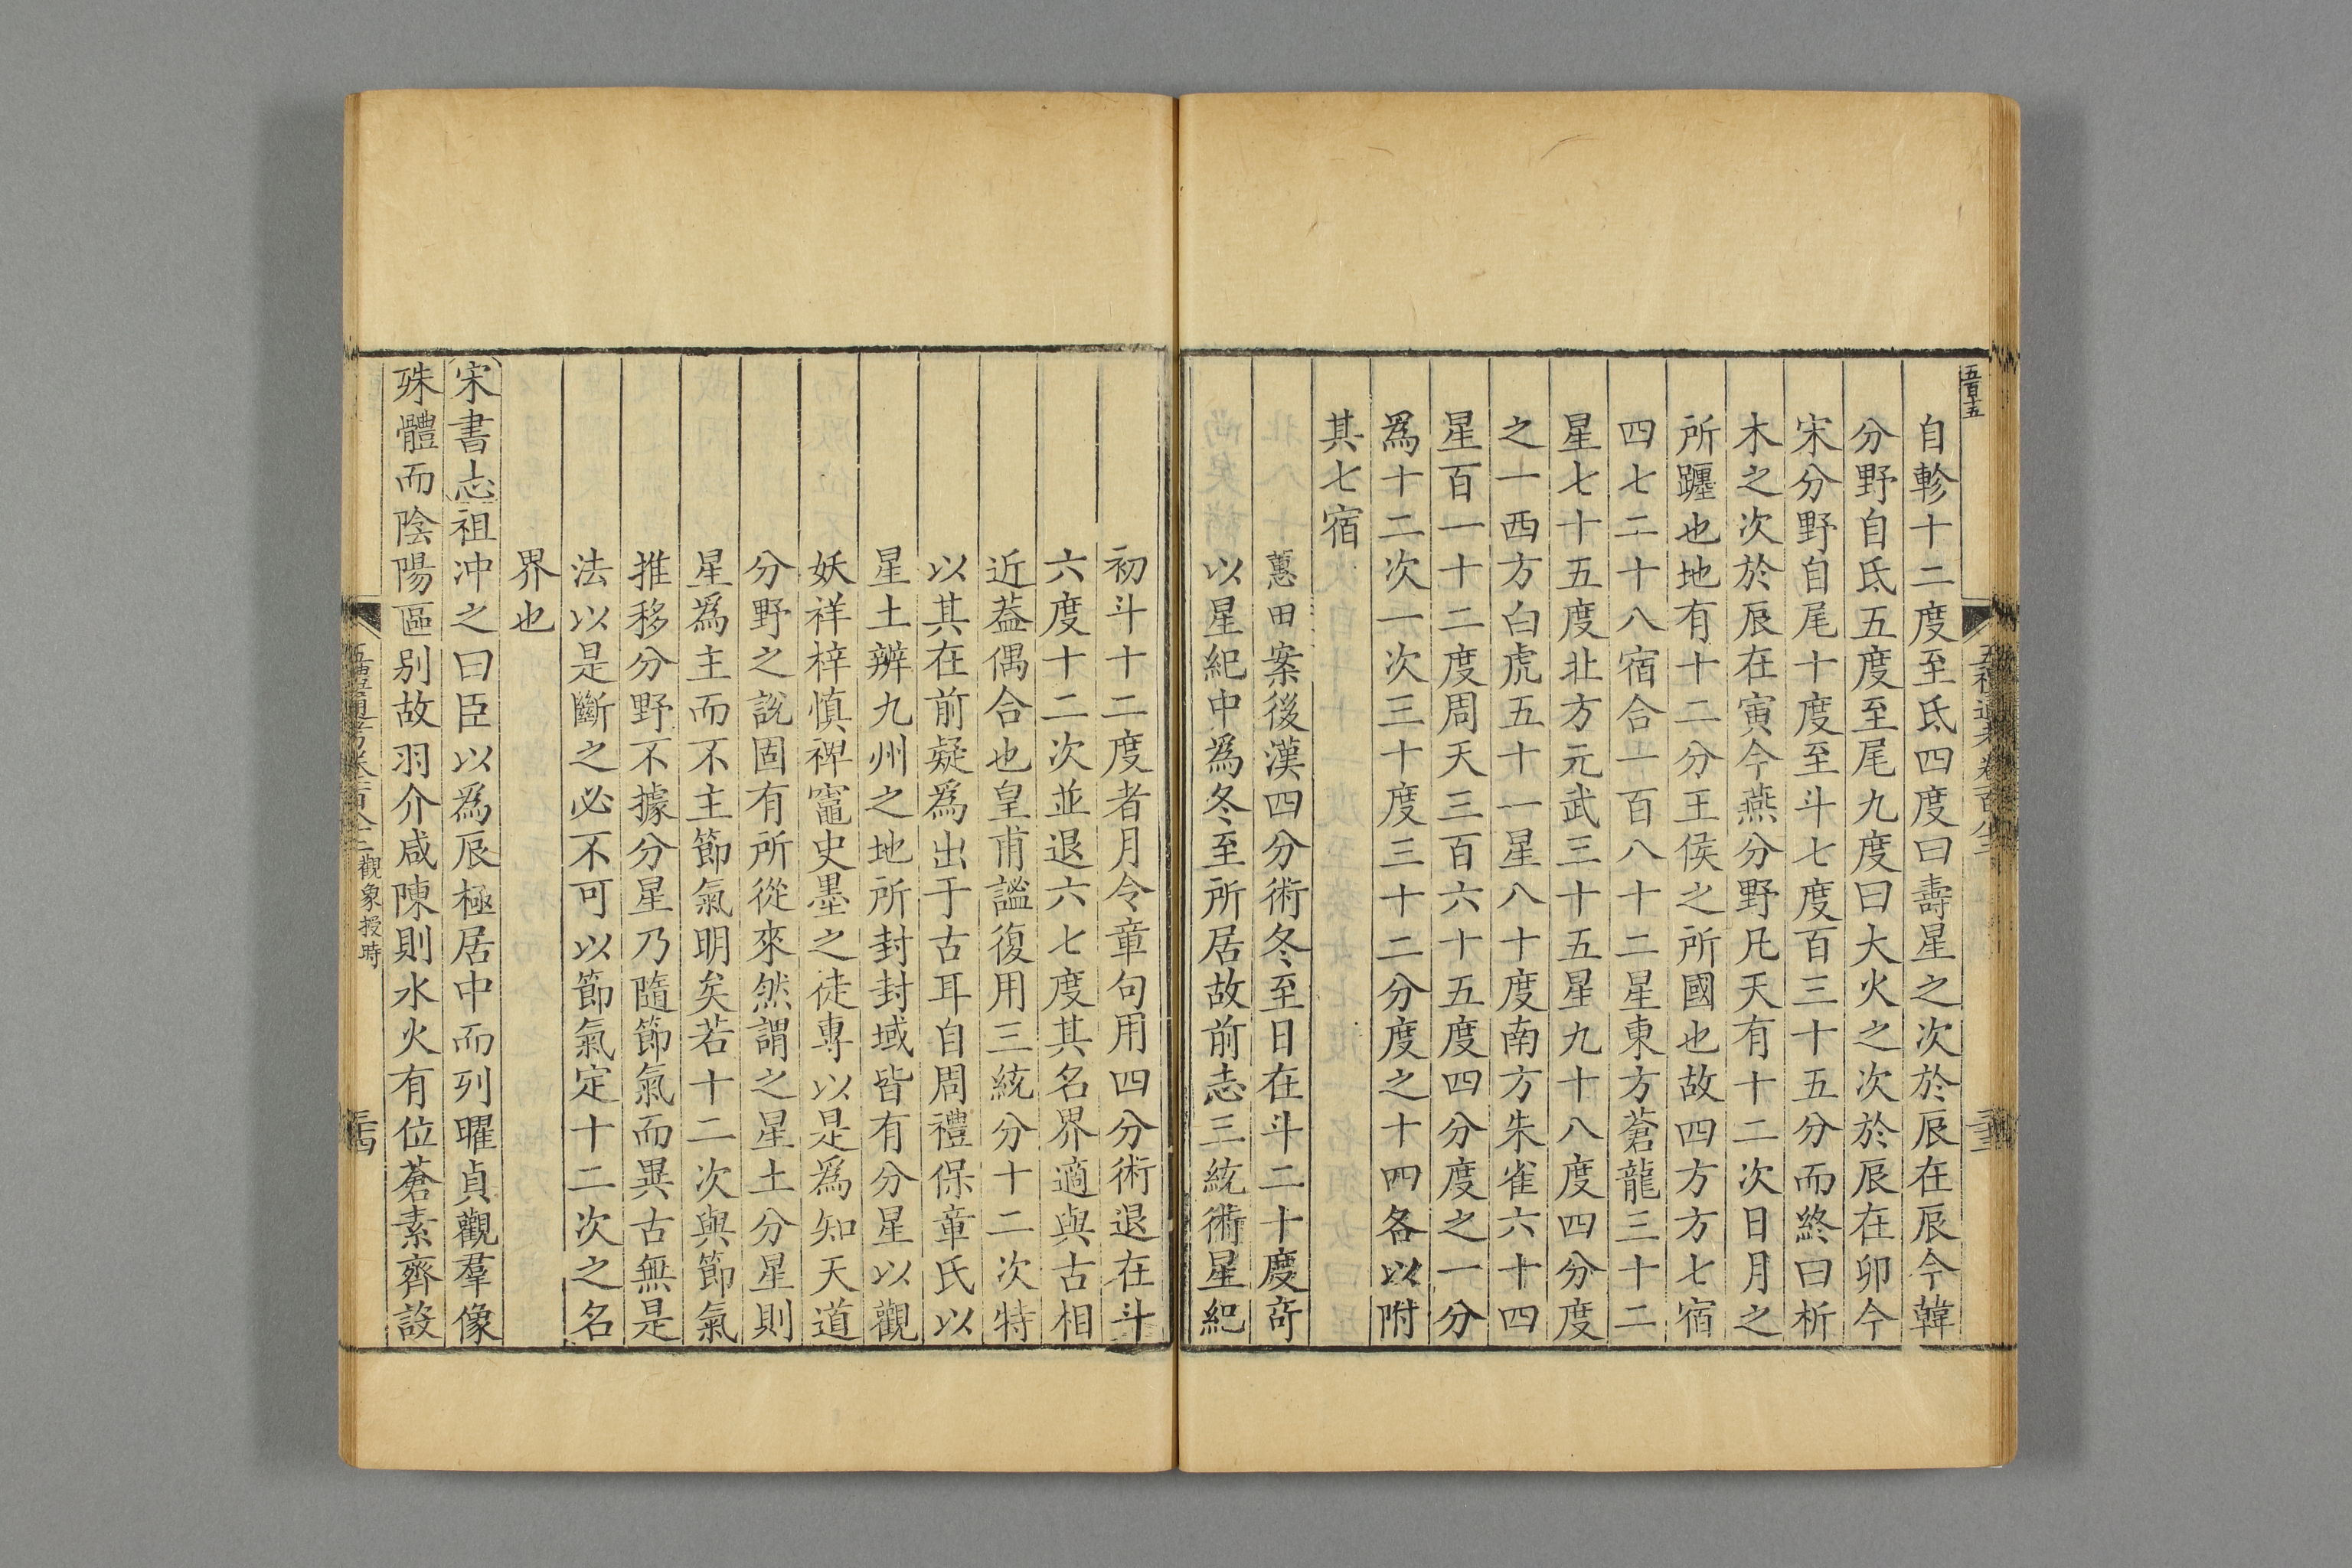 五百十五
自軫十二度至氐四度曰壽星之次於辰在辰今韓
分野自氐五度至尾九度曰大火之次於辰在卯今
宋分野自尾十度至斗七度百三十五分而終曰析
木之次於辰在寅今燕分野凡天有十二次日月之
所躔也地有十二分王侯之所國也故四方方七宿
四七二十八宿合一百八十二星東方蒼龍三十二
星七十五度北方元武三十五星九十八度四分度
之一西方白虎五十一星八十度南方朱雀六十四
星百一十二度周天三百六十五度四分度之一分
爲十二次一次三十度三十二分度之十四各以附
其七宿
蕙田案後漢四分術冬至日在斗二十度竒
以星紀中爲冬至所居故前志三統術星紀
初斗十二度者月令章句用四分術退在斗
六度十二次並退六七度其名界適與古相
近葢偶合也皇甫謐復用三統分十二次特
以其在前疑爲出于古耳自周禮保章氏以
星土辨九州之地所封封域皆有分星以觀
妖祥梓慎裨竈史墨之徒專以是爲知天道
分野之說固有所從來然謂之星土分星則
星爲主而不主節氣明矣若十二次與節氣
推移分野不據分星乃隨節氣而異古無是
法以是斷之必不可以節氣定十二次之名
界也
宋書志祖冲之曰臣以爲辰極居中而列曜貞觀羣像
殊體而陰陽區别故羽介咸陳則水火有位蒼素齊設
觀象授時